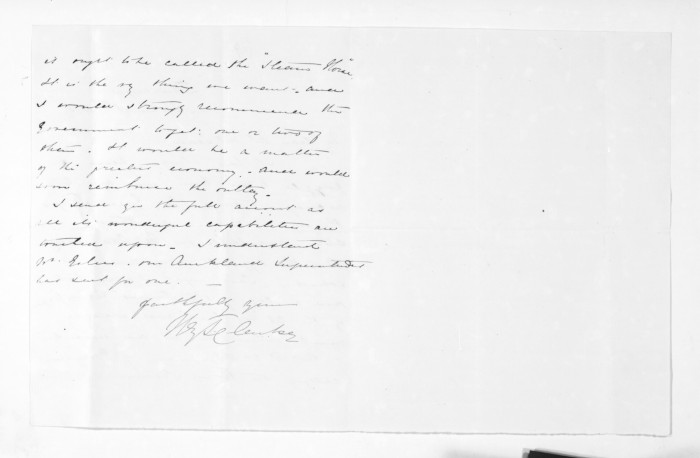 it ought to be called the "Steam Horse"
It is the vy thing we want - and
I would strongly recommend the
Government to get one or two of
them. It would be a matter
of the greatest economy - and would
soon reimburse the outlay -
I send you the full account as
all its wonderful capabilities are
touched upon - I understand
Mr. our Auckland Superintendt
has sent for one. -
faithfully yours